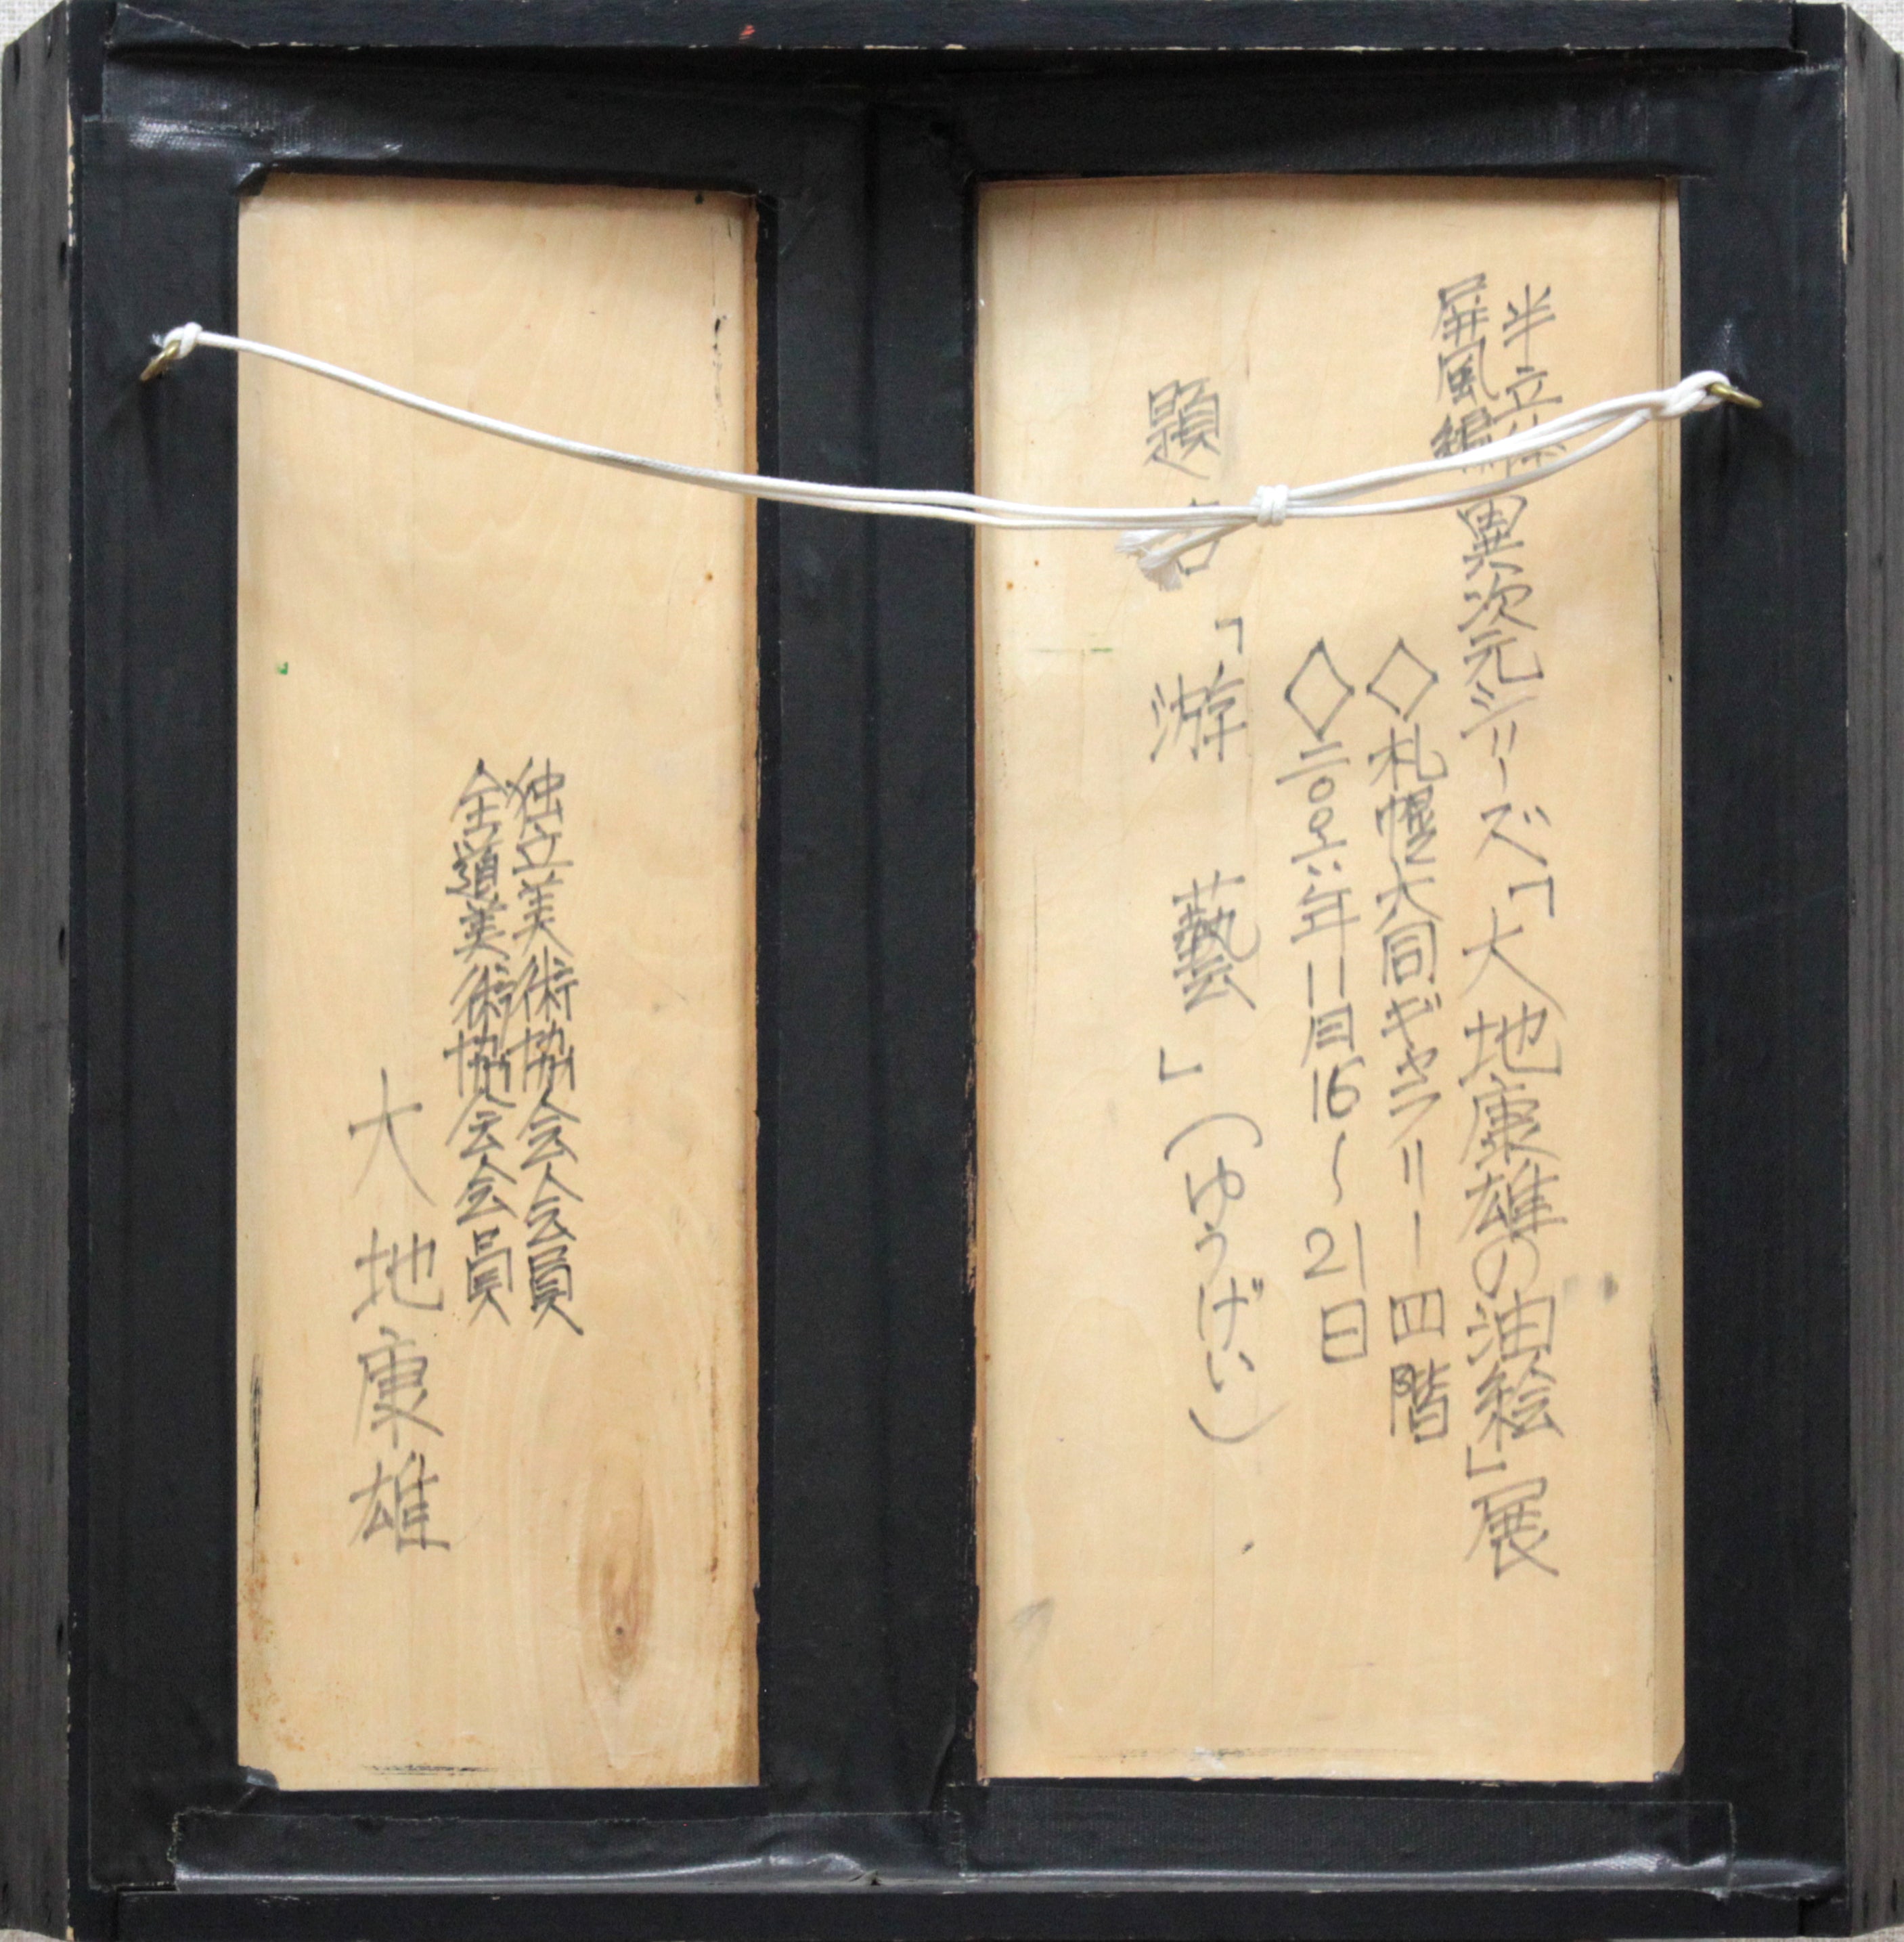 半立体
屏風編
異次元シリーズ「大地康雄の油絵」展
◇札幌大同ギャラリー四階
◇二〇〇六年11月16～21日
題名「游藝」(ゆうげい)
独立美術協会会員
全道美術協会会員
大地康雄